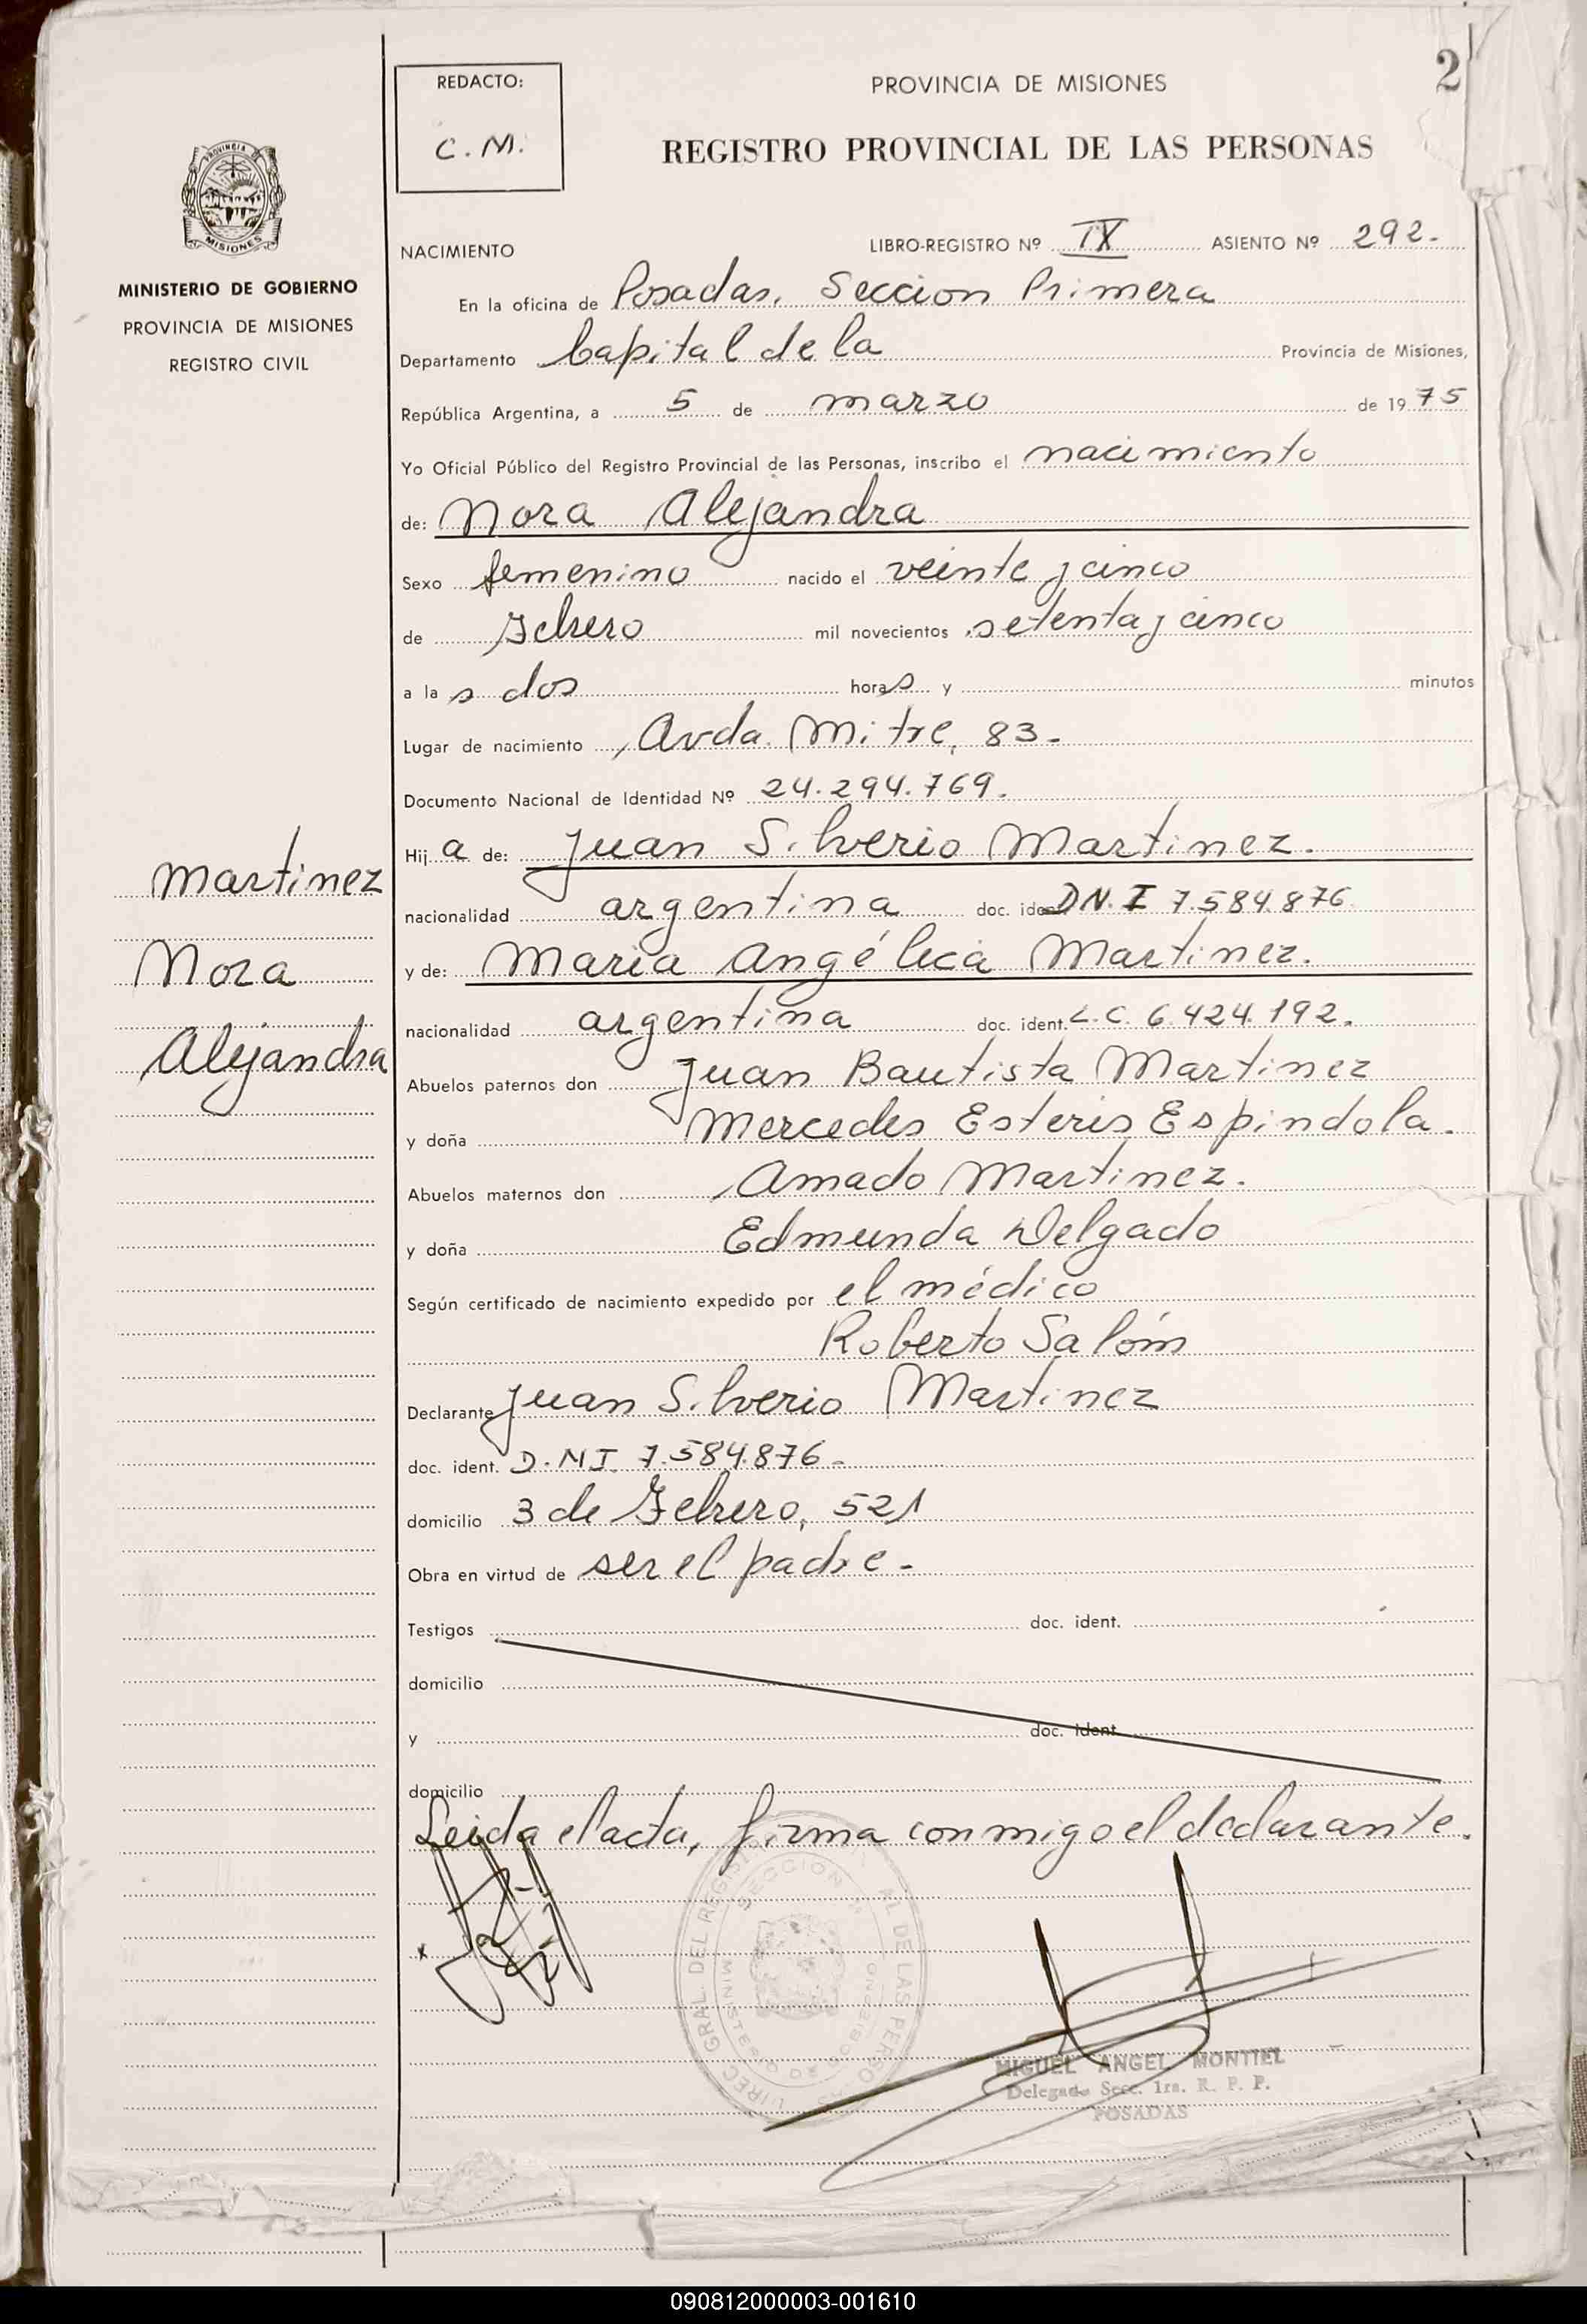 2
REDACTO:
C. M.
PROVINCIA DE MISIONES
REGISTRO PROVINCIAL DE LAS PERSONAS
PROVINCIA DE
MISIONES
MINISTERIO DE GOBIERNO
PROVINCIA DE MISIONES
REGISTRO CIVIL
NACIMIENTO LIBRO-REGISTRO Nº IX ASIENTO Nº 292.-
En la oficina de Posadas, Seccion Primera
Departamento Capital de la Provincia de Misiones,
República Argentina, a 5 de marzo de 1975
Yo Oficial Público del Registro Provincial de las Personas, inscribo el nacimiento
de: Nora Alejandra
Sexo femenino nacido el veinte y cinco
de Febrero mil novecientos setenta y cinco
a las dos horas y minutos
Lugar de nacimiento Avda. Mitre, 83.-
Documento Nacional de Identidad Nº 24.294.769.
Hija de: Juan Silverio Martinez.
nacionalidad argentina doc. ident. D.N.I 7.584.876
y de: Maria Angélica Martinez.
nacionalidad argentina doc. ident. L.C. 6.424.192.
Abuelos paternos don Juan Bautista Martinez
y doña Mercedes Esteris Espindola.
Abuelos maternos don Amado Martinez.
y doña Edmunda Delgado
Según certificado de nacimiento expedido por el médico
Roberto Salóm
Declarante Juan Silverio Martinez
doc. ident. D.N.I. 7.584.876.-
domicilio 3 de Febrero, 521
Obra en virtud de ser el padre.-
Testigos doc. ident.
domicilio
y doc. ident.
domicilio
Leida el acta, firma conmigo el declarante.
Martinez
Nora
Alejandra
GRAL. DEL REGIS
AL DE LAS PERSO
SECCION
MINISTERIO DE GOBIERNO
MIGUEL ANGEL MONTIEL
Delegado Secc. 1ra. R. P. P.
POSADAS
090812000003-001610